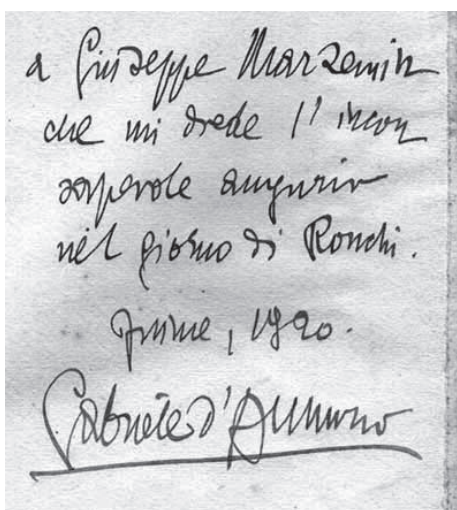 a Giuseppe Marzemin
che mi diede l' incon
sapevole augurio
nel giorno di Ronchi.
Fiume, 1920.
Gabriele d'Annunzio